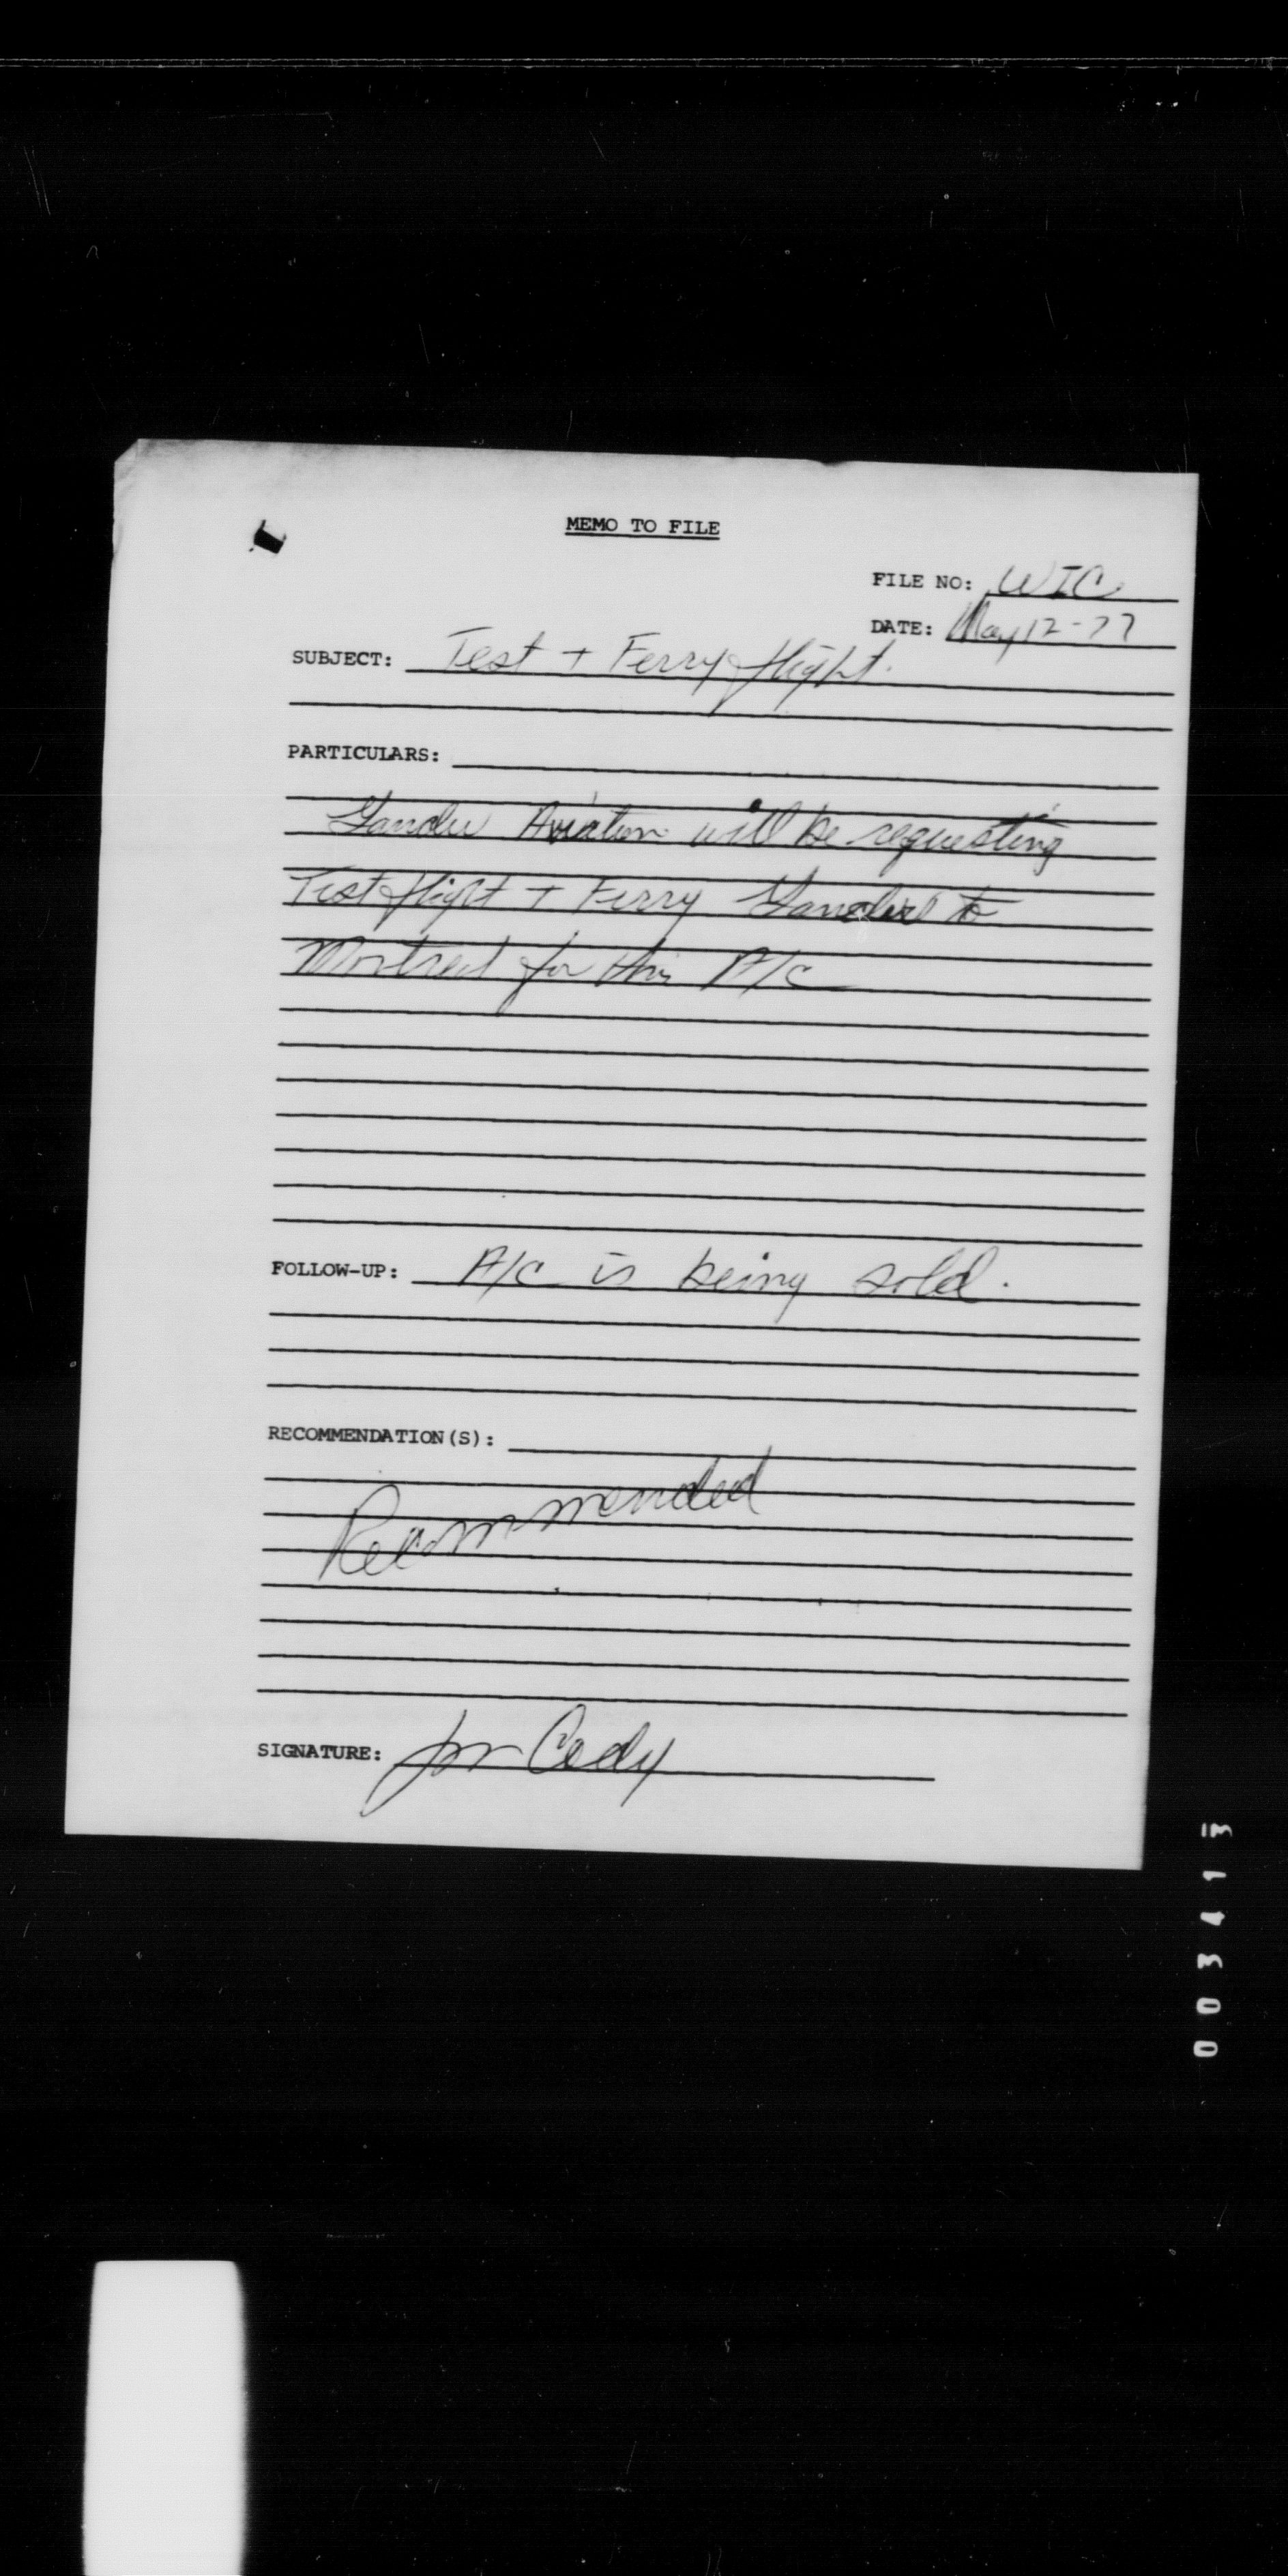 MEMO TO FILE
FILE NO: WIC
DATE: May 12-77
SUBJECT: Test + Ferry flight.
PARTICULARS:
Gander Aviation will be requesting
Test flight + Ferry Gander to
Montreal for this A/C
FOLLOW-UP: A/C is being sold.
RECOMMENDATION(S):
Recommended
SIGNATURE: Cody
003413